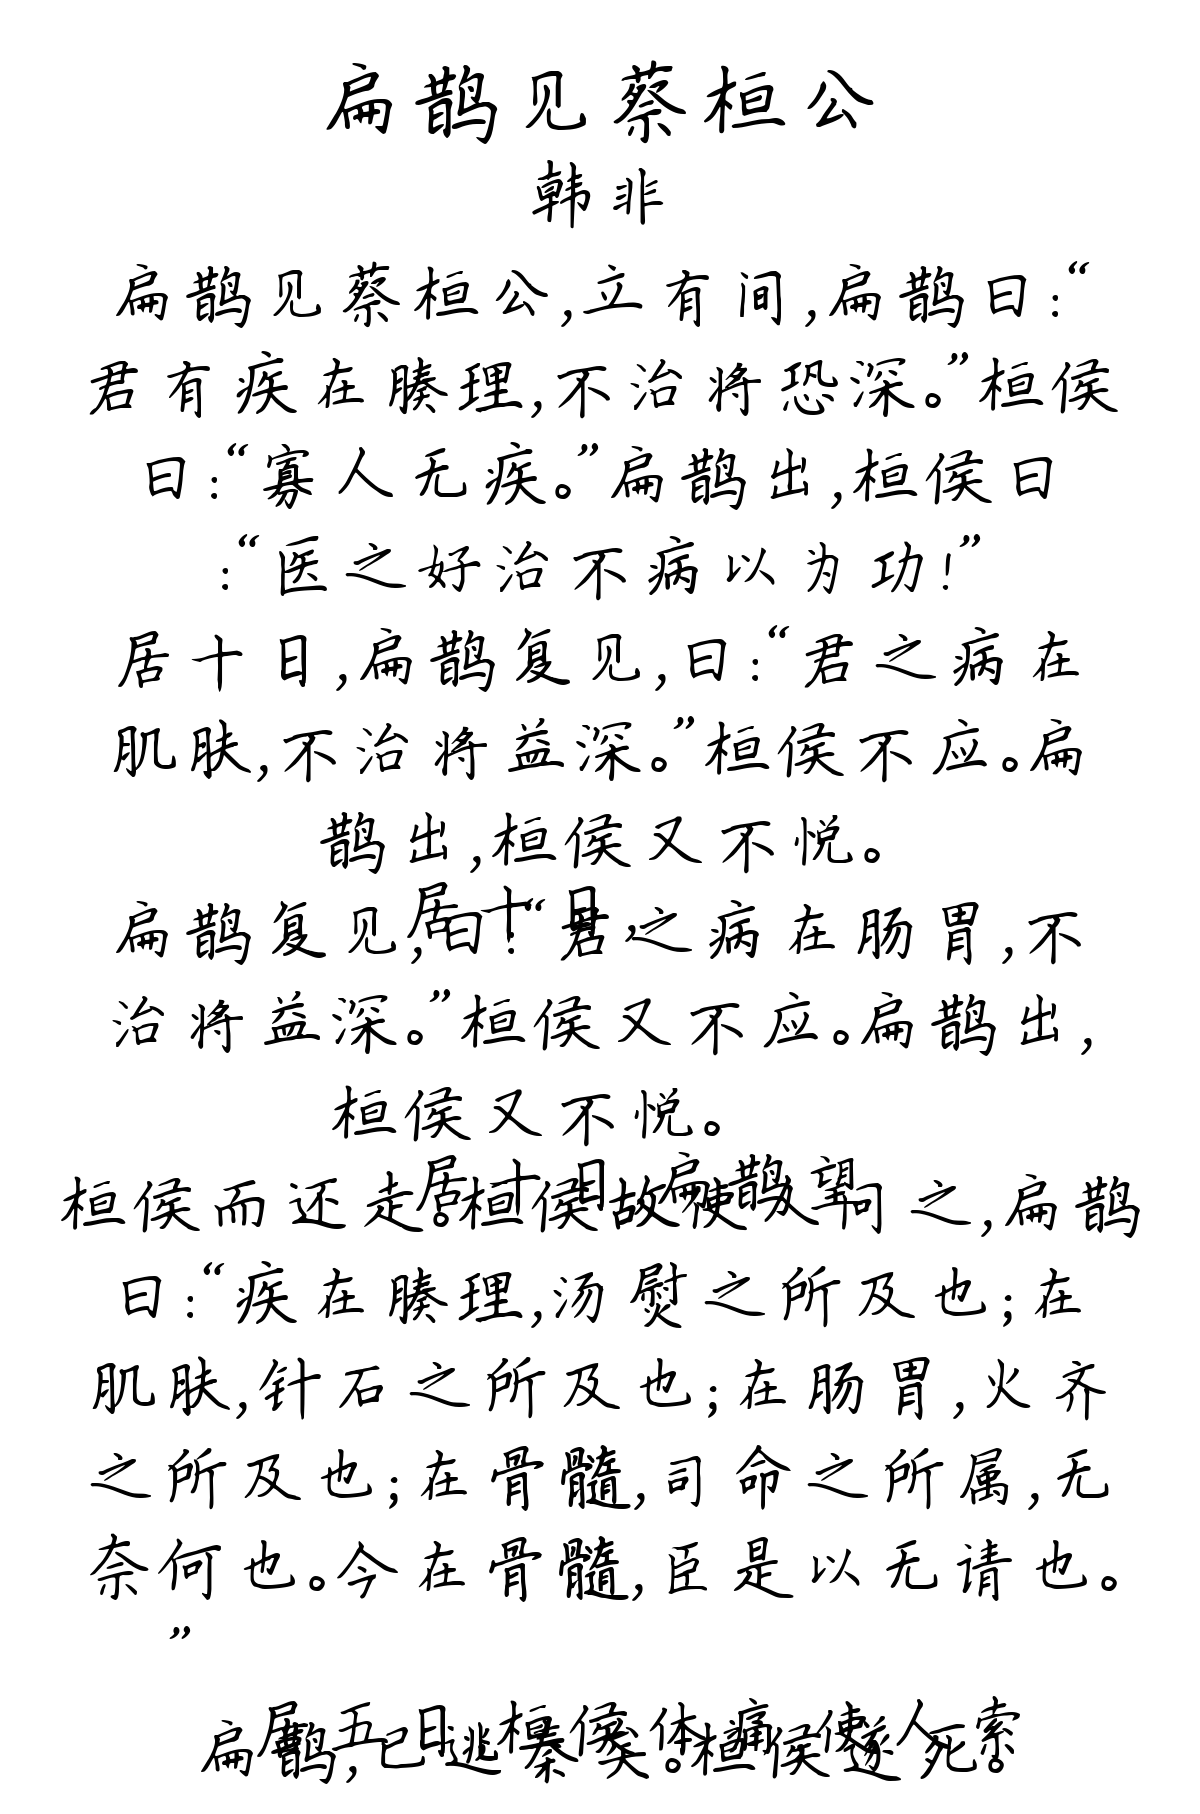 扁鹊见蔡桓公
韩非
扁鹊见蔡桓公,立有间,扁鹊曰:“
君有疾在腠理,不治将恐深。”桓侯
曰:“寡人无疾。”扁鹊出,桓侯曰
:“医之好治不病以为功!”
居十日,扁鹊复见,曰:“君之病在
肌肤,不治将益深。”桓侯不应。扁
鹊出,桓侯又不悦。
居十日,
扁鹊复见,曰:“君之病在肠胃,不
治将益深。”桓侯又不应。扁鹊出,
桓侯又不悦。
居十日,扁鹊望
桓侯而还走。桓侯故使人问之,扁鹊
曰:“疾在腠理,汤熨之所及也;在
肌肤,针石之所及也;在肠胃,火齐
之所及也;在骨髓,司命之所属,无
奈何也。今在骨髓,臣是以无请也。
”
居五日,桓侯体痛,使人索
扁鹊,已逃秦矣。桓侯遂死。